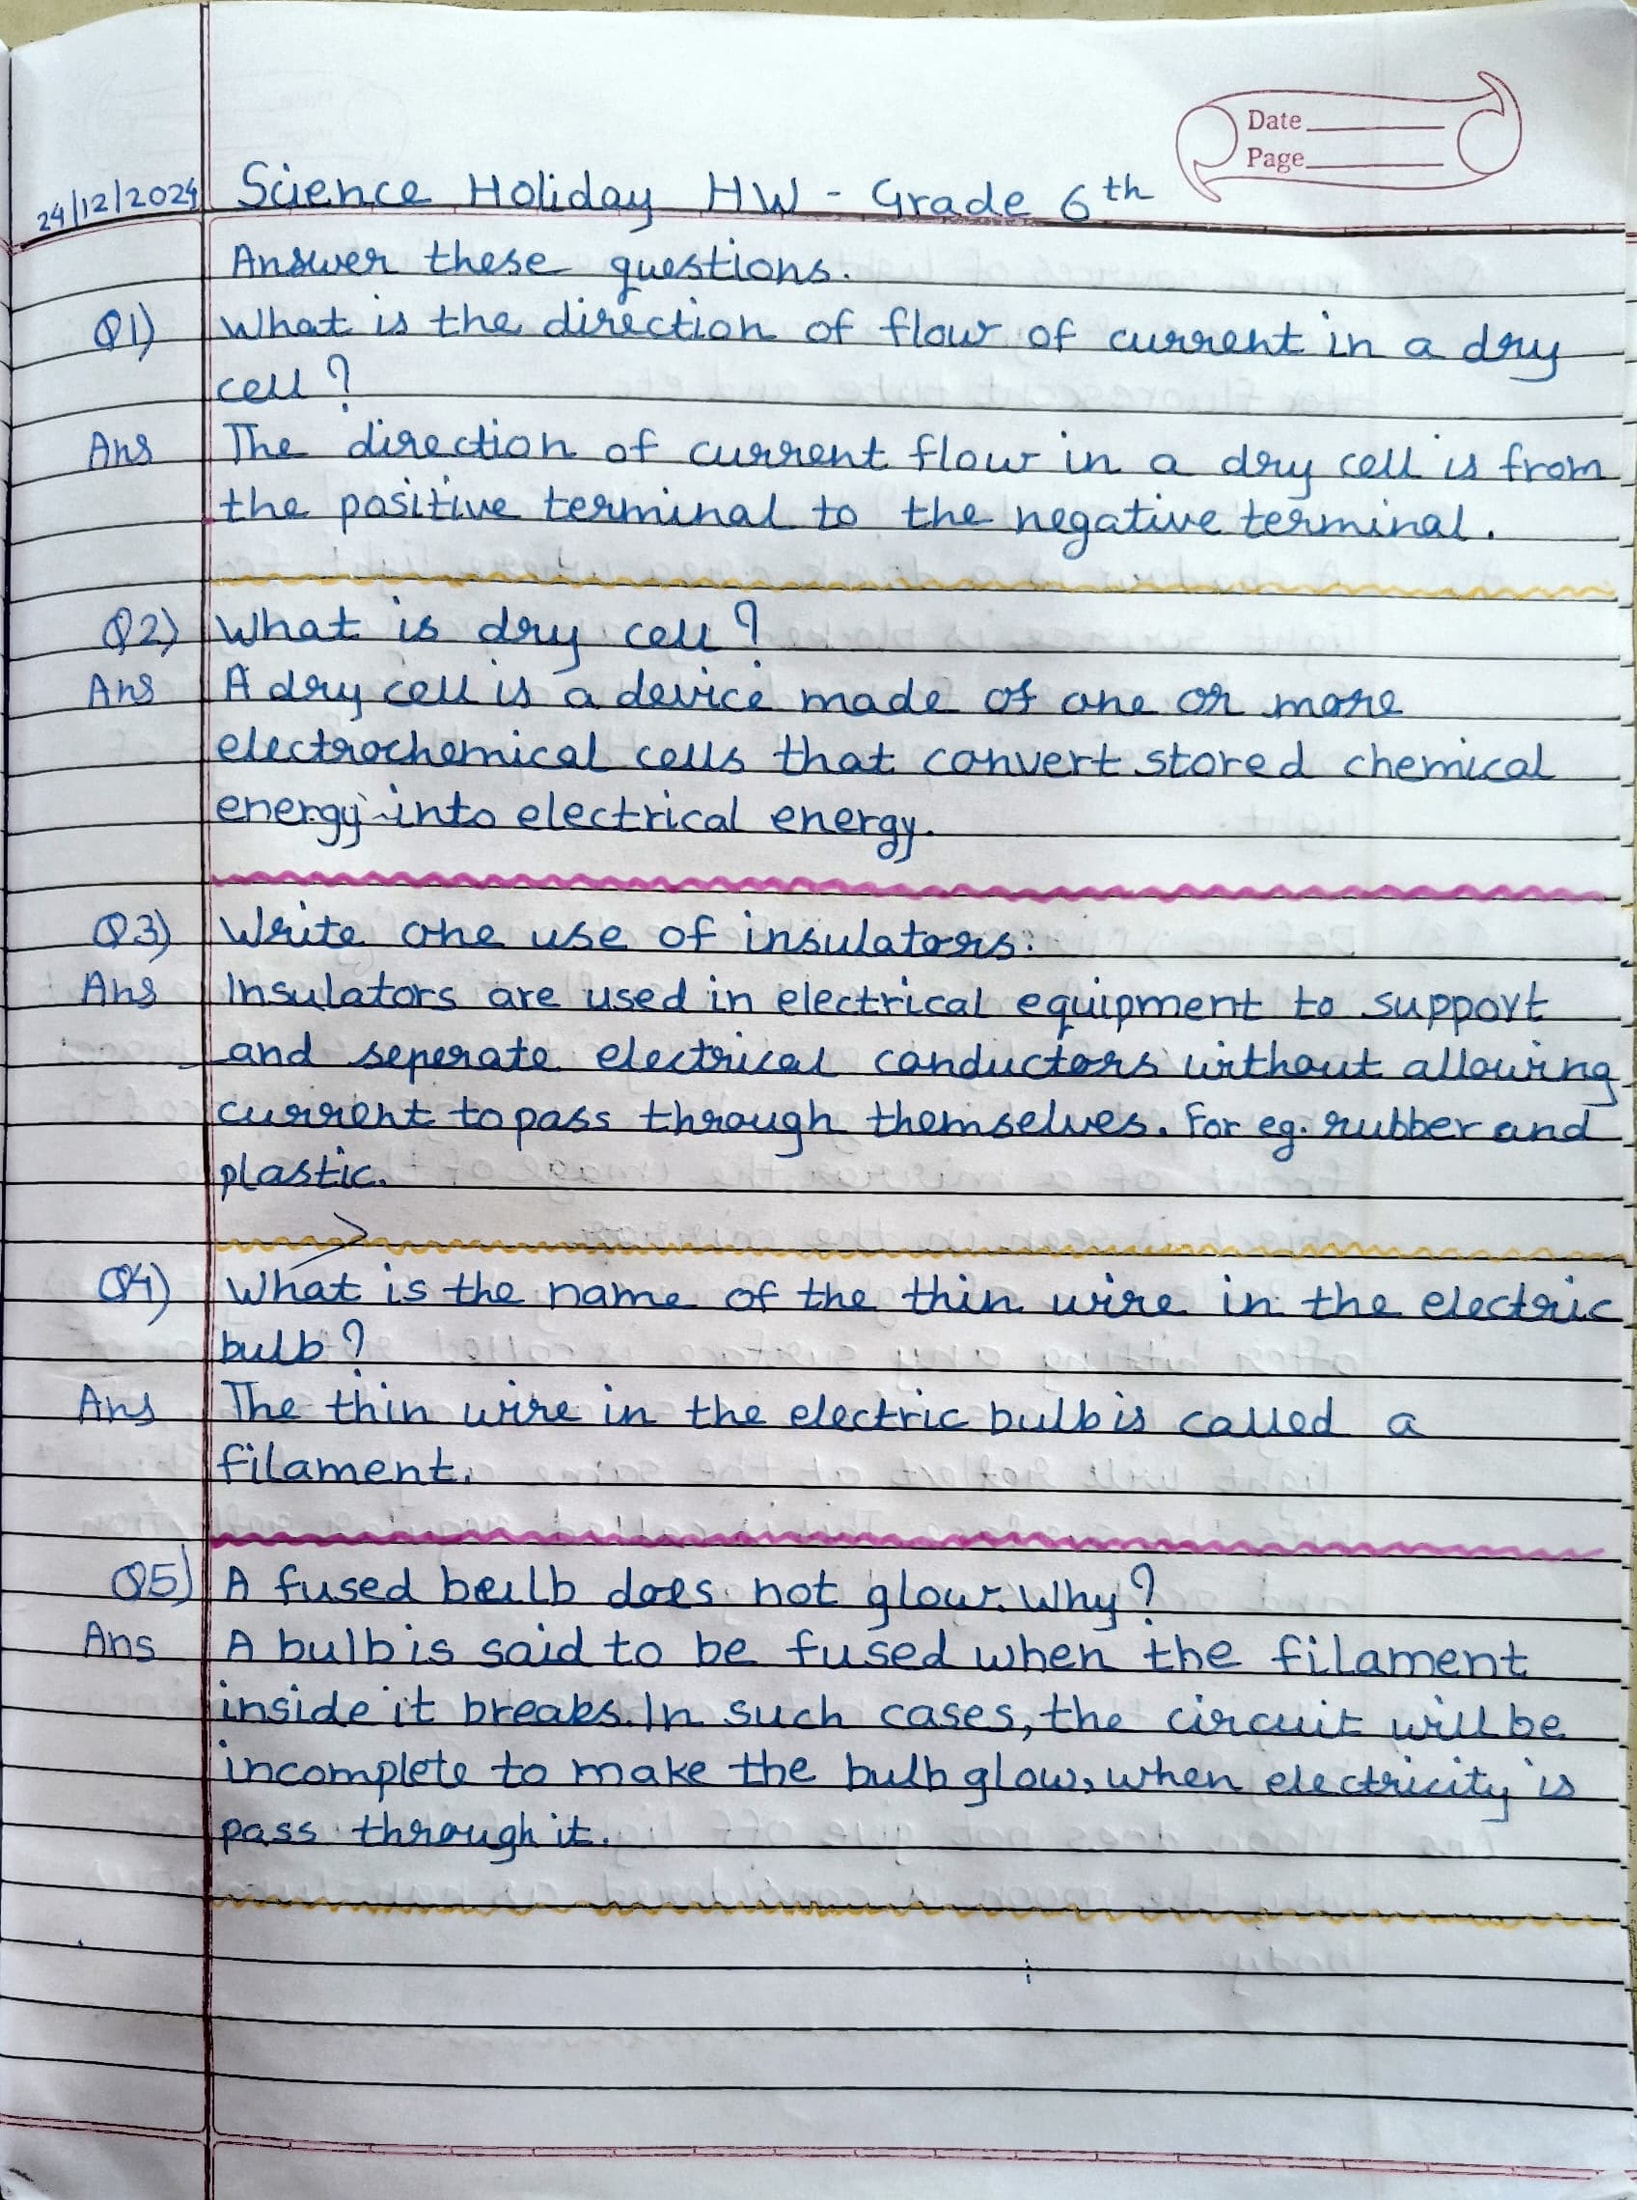 Date
Page
24/12/2024 Science Holiday HW - Grade 6th
Answer these questions.
Q1) What is the direction of flow of current in a dry
cell?
Ans The direction of current flow in a dry cell is from
the positive terminal to the negative terminal.
Q2) What is dry cell?
Ans A dry cell is a device made of one or more
electrochemical cells that convert stored chemical
energy into electrical energy.
Q3) Write one use of insulators:
Ans Insulators are used in electrical equipment to support
and seperate electrical conductors without allowing
current to pass through themselves. For eg. rubber and
plastic.
Q4) What is the name of the thin wire in the electric
bulb?
Ans The thin wire in the electric bulb is called a
filament.
Q5) A fused bulb does not glow. Why?
Ans A bulb is said to be fused when the filament
inside it breaks. In such cases, the circuit will be
incomplete to make the bulb glow, when electricity is
pass through it.